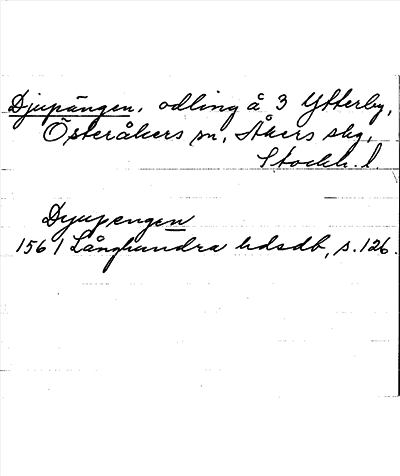 Djupängen, odling å 3 Ytterby,
Österåkers sn, Åkers skg,
Stockh. l
Dyupengen
1561 Långhundra hdsdb, s. 126.